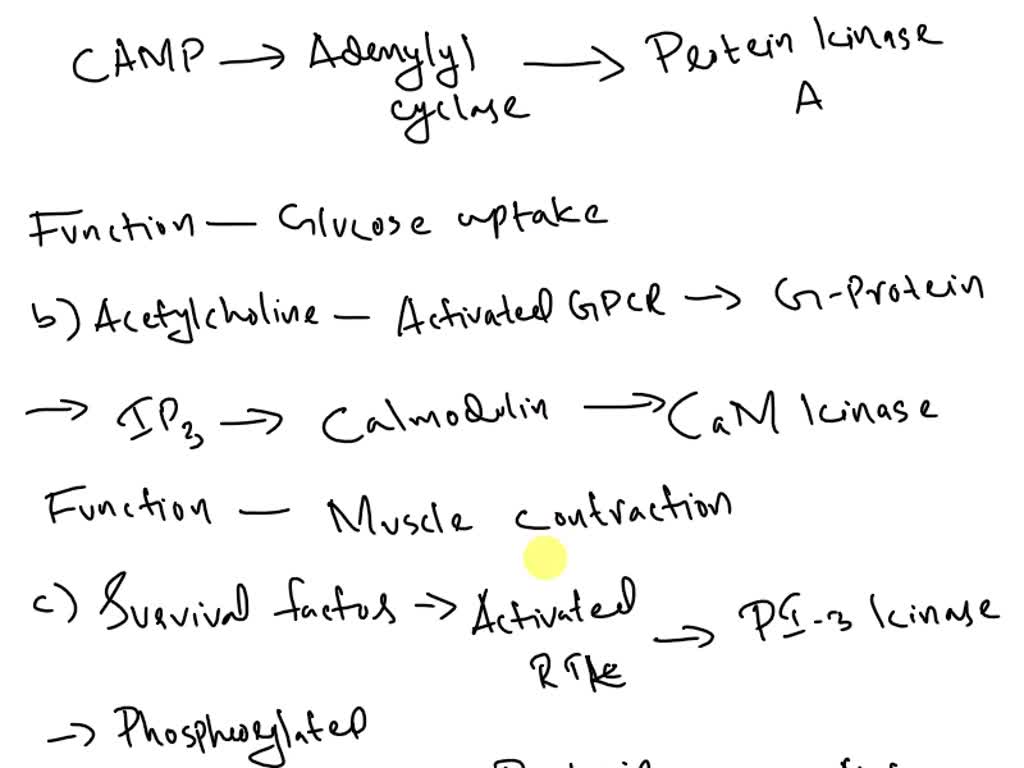 CAMP → Adenylyl cyclase → Protein kinase A
Function — Glucose uptake
b) Acetylcholine — Activated GPCR → G-Protein
→ IP3 → Calmodulin → CaM kinase
Function — Muscle contraction
c) Survival factos → Activated RTK → PI-3 kinase
→ Phosphorylated